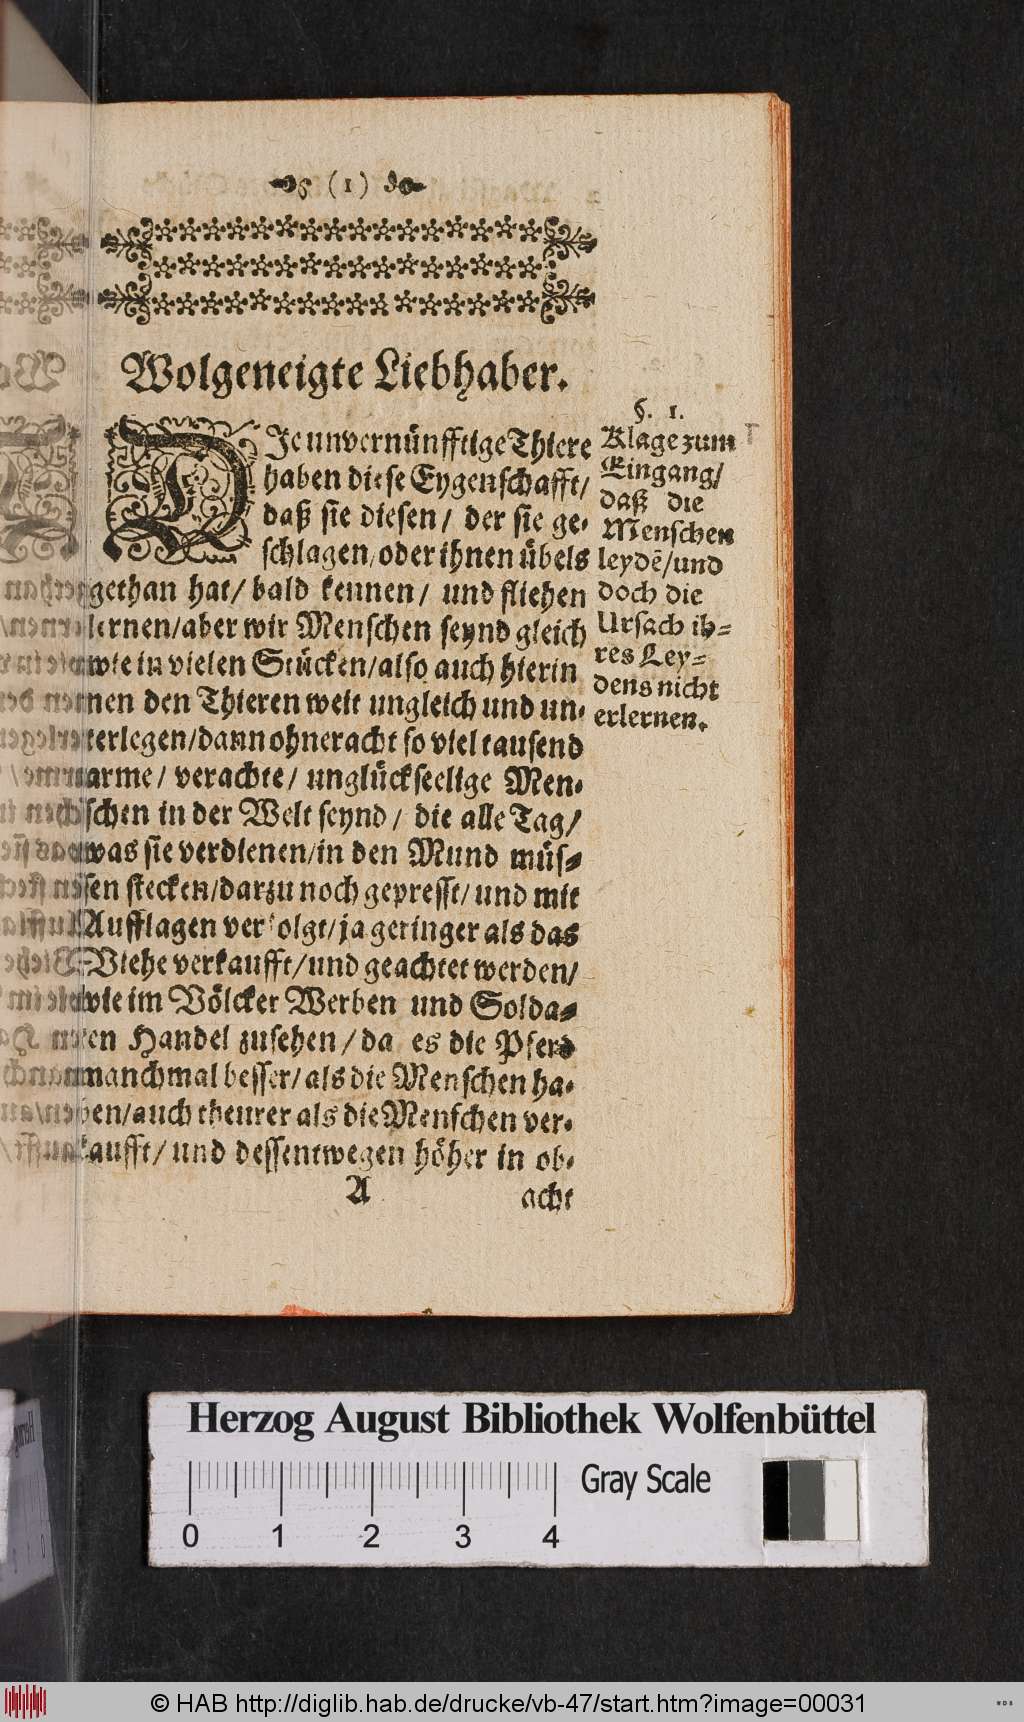 (1)
Wolgeneigte Liebhaber.
DIe unvernünfftige Thiere
haben diese Eygenschafft/
daß sie diesen/ der sie ge-
schlagen/oder ihnen übels
gethan hat/ bald kennen/ und fliehen
lernen/aber wir Menschen seynd gleich
wie in vielen Stücken/also auch hierin
nen den Thieren weit ungleich und un-
terlegen/dann ohneracht so viel tausend
arme/ verachte/ unglückseelige Men-
schen in der Welt seynd/ die alle Tag/
was sie verdienen/in den Mund müs-
sen stecken/darzu noch gepresst/ und mit
Aufflagen verfolgt/ja geringer als das
Viehe verkaufft/und geachtet werden/
wie im Völcker Werben und Solda-
ten Handel zusehen/da es die Pferd
manchmal besser/als die Menschen ha-
ben/auch theurer als die Menschen ver-
kaufft/und dessentwegen höher in ob-
A acht
§. 1.
Klage zum
Eingang/
daß die
Menschen
leydẽ/und
doch die
Ursach ih-
res Ley-
dens nicht
erlernen.
Herzog August Bibliothek Wolfenbüttel
Gray Scale
0 1 2 3 4
© HAB http://diglib.hab.de/drucke/vb-47/start.htm?image=00031